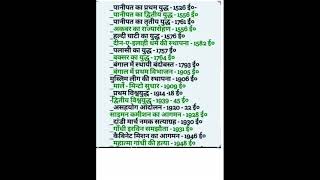 _पानीपत का प्रथम युद्ध - 1526 ई०-
_पानीपत का द्वितीय युद्ध - 1556 ई०
_पानीपत का तृतीय युद्ध - 1761 ई०
_अकबर का राज्यारोहण - 1556 ई०
_हल्दी घाटी का युद्ध - 1576 ई०
_दीन-ए-इलाही धर्म की स्थापना - 1582 ई०
_प्लासी का युद्ध - 1757 ई०
_बक्सर का युद्ध - 1764 ई०
_बंगाल में स्थायी बंदोबस्त - 1793 ई०
_बंगाल में प्रथम विभाजन - 1905 ई०
मुस्लिम लीग की स्थापना - 1906 ई०
_मार्ले - मिन्टो सुधार - 1909 ई०
_प्रथम विश्वयुद्ध - 1914 -18 ई०
_द्वितीय विश्वयुद्ध - 1939 - 45 ई०
_असहयोग आंदोलन - 1920 - 22 ई०
साइमन कमीशन का आगमन - 1928 ई०
_दांडी मार्च नमक सत्याग्रह - 1930 ई०
_गाँधी इरविन समझौता - 1931 ई०
_कैबिनेट मिशन का आगमन - 1946 ई०
_महात्मा गांधी की हत्या - 1948 ई०